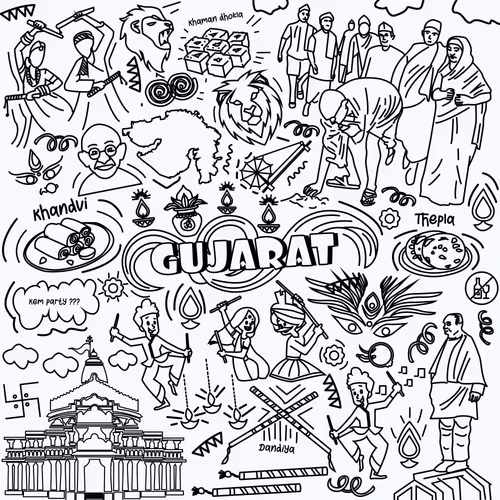 Khaman dhokla
Khandvi
Thepla
GUJARAT
Kem party ???
Dandiya